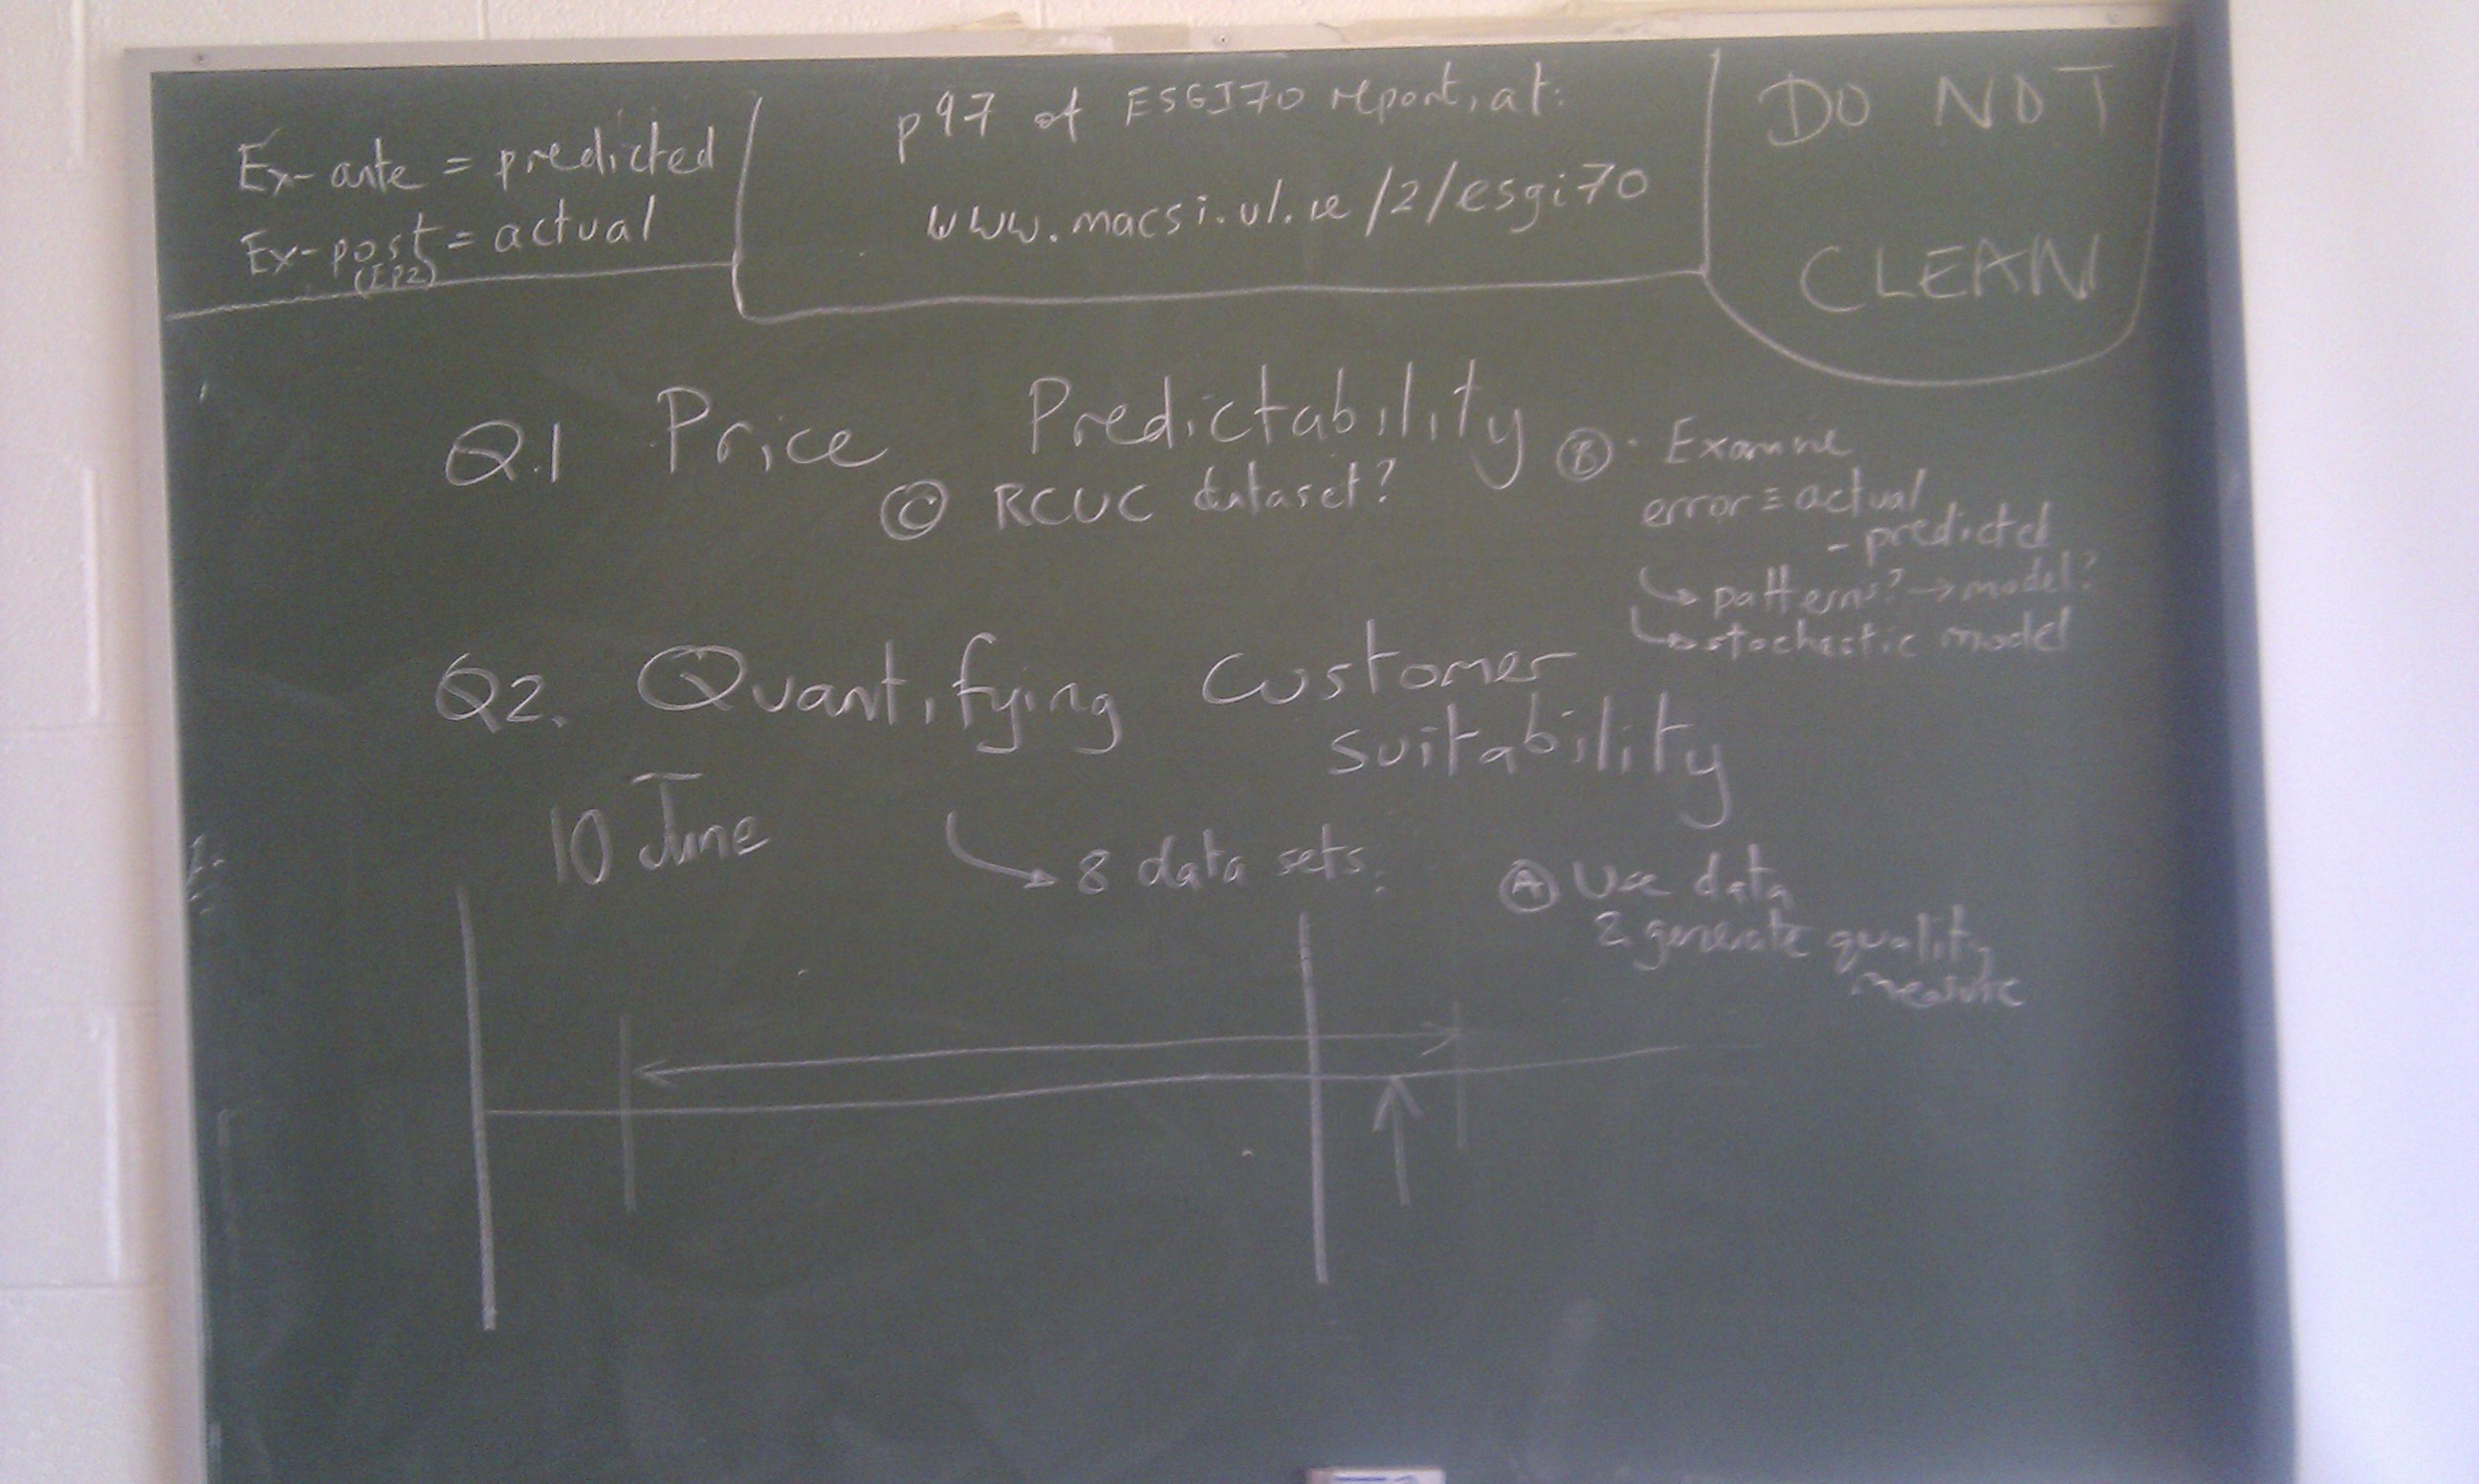 Ex-ante = predicted
Ex-post = actual
(EP2)
p97 of ESGI70 report, at:
www.macsi.ul.ie/2/esgi70
DO NOT
CLEAN
Q.1 Price Predictability
Ⓒ RCUC dataset?
Ⓑ · Examine
error ≡ actual
- predicted
↳ patterns? → model?
↳ stochastic model
Q2. Quantifying Customer
suitability
10 June
↳ 8 data sets:
Ⓐ Use data
& generate quality
measure